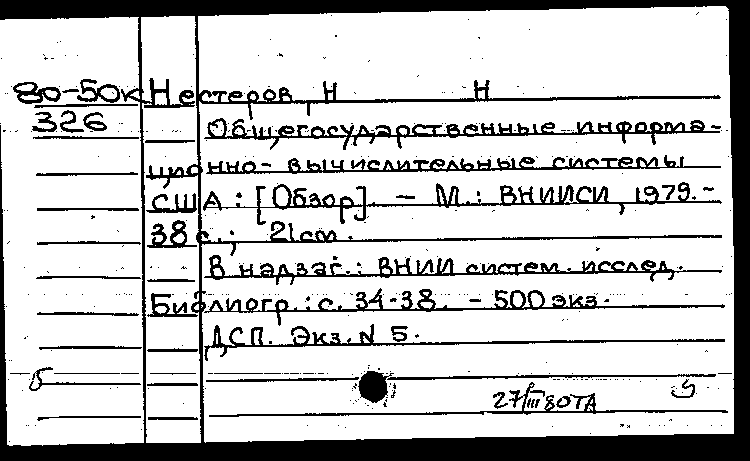 80-50к Нестеров, Н Н
326
Общегосударственные информа-
ционно-вычислительные системы
США: [Обзор]. - М.: ВНИИСИ, 1979. -
38 с.; 21 см.
В надзаг.: ВНИИ систем. исслед.
Библиогр.: с. 34-38. - 500 экз.
ДСП. Экз. N 5.
Б
27/III 80 ТА